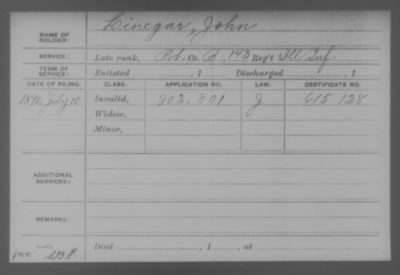 NAME OF SOLDIER: Linegar, John
SERVICE: Late rank, Pvt. Co. B, 143 Reg't Ill Inf.
TERM OF SERVICE: Enlisted , 1 Discharged , 1
DATE OF FILING. CLASS. APPLICATION NO. LAW. CERTIFICATE NO.
1890, July 10 Invalid, 803.801 J 615 128
Widow,
Minor,
ADDITIONAL SERVICES:
REMARKS:
Died , 1 , at